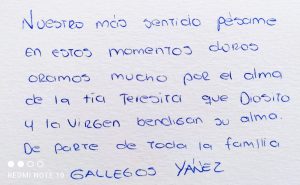 Nuestro más sentido pésame
en estos momentos duros
oramos mucho por el alma
de la tía Teresita que Diosito
y la Virgen bendigan su alma.
De parte de toda la familia
GALLEGOS YÁÑEZ
REDMI NOTE 10